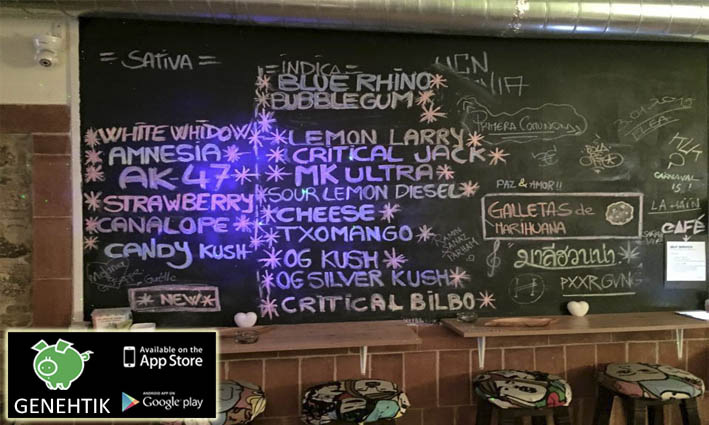 = SATIVA =
WHITE WHIDOW
AMNESIA
AK-47
STRAWBERRY
CANALOPE
CANDY KUSH
* NEW *
= INDICA =
BLUE RHINO
BUBBLEGUM
LEMON LARRY
CRITICAL JACK
MK ULTRA
SOUR LEMON DIESEL
CHEESE
TXOMANGO
OG KUSH
OG SILVER KUSH
CRITICAL BILBO
PRIMERA COMUNION
IBIZA
PAZ & AMOR!!
GALLETAS de
MARIHUANA
PXXRGVNG
CARNAVAL
15!
LA HAIN
CAFÉ
RAMIN
SANAZ
PARHAM
GENEHTIK
Available on the
App Store
ANDROID APP ON
Google play